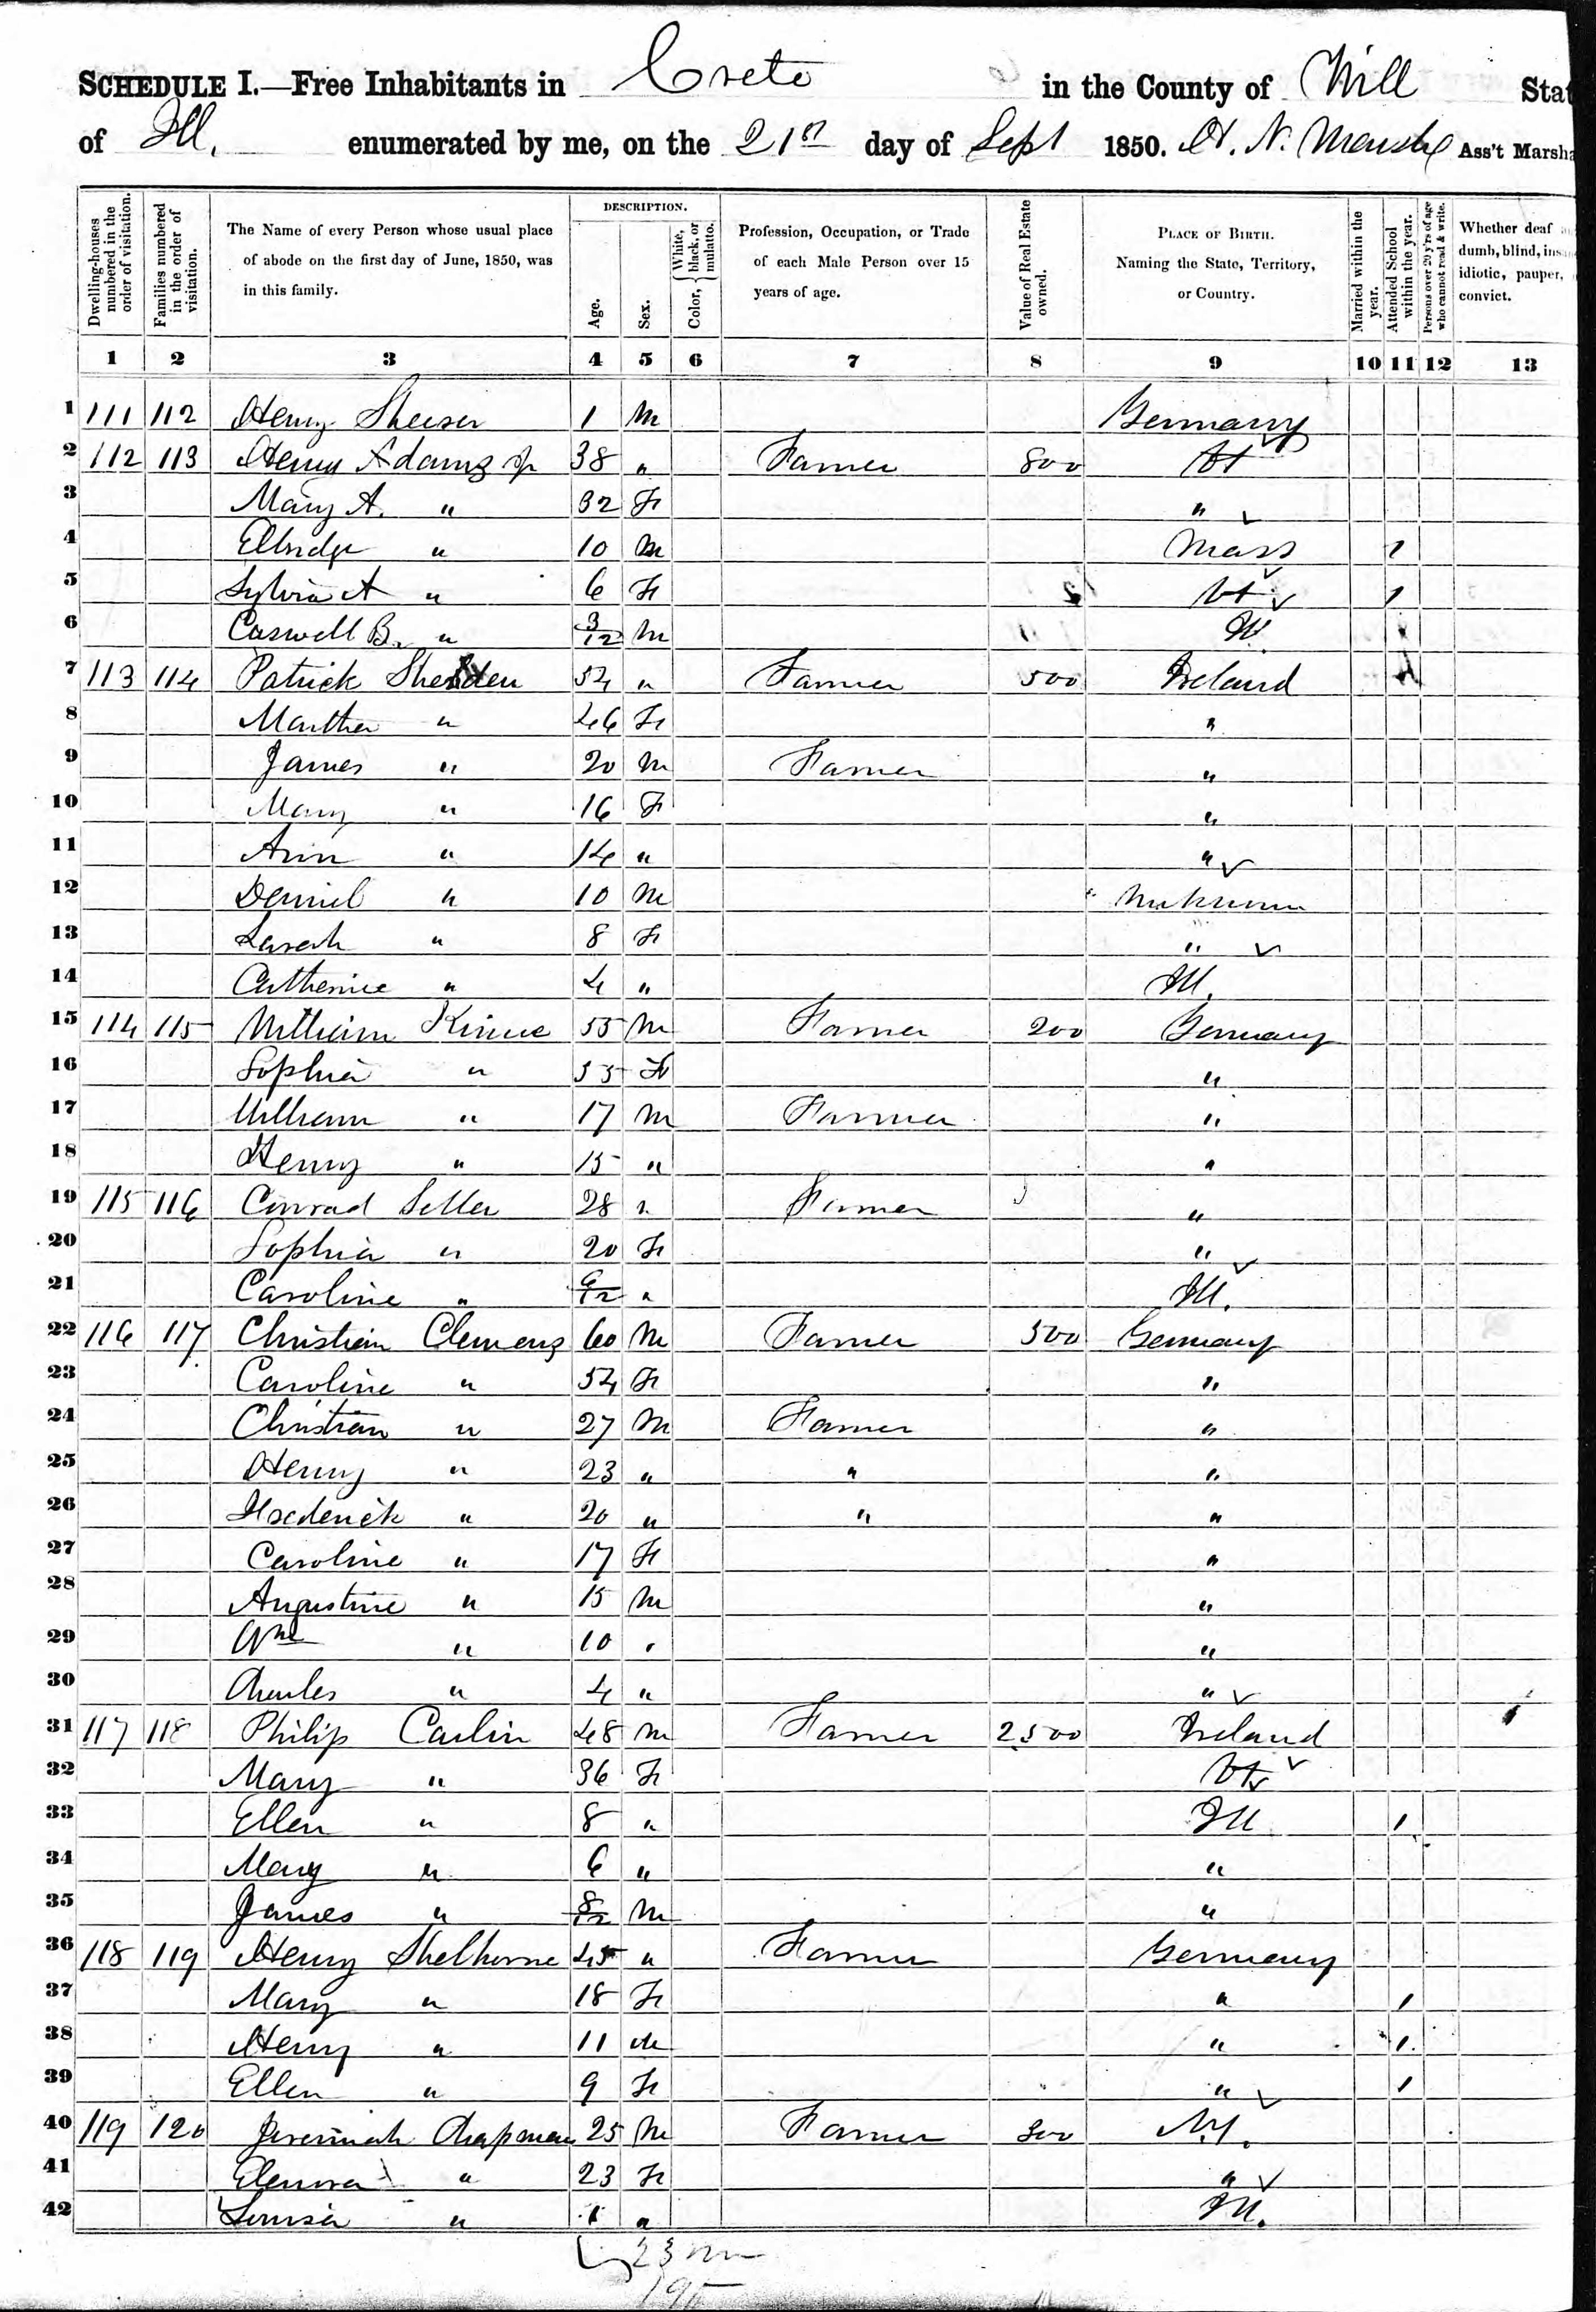 SCHEDULE I.—Free Inhabitants in Crete in the County of Will Stat
of Ill. enumerated by me, on the 21st day of Sept 1850. H. N. Marsh Ass't Marsha
Dwelling-houses numbered in the order of visitation.
Families numbered in the order of visitation.
The Name of every Person whose usual place of abode on the first day of June, 1850, was in this family.
DESCRIPTION.
Age.
Sex.
Color, White, black, or mulatto.
Profession, Occupation, or Trade of each Male Person over 15 years of age.
Value of Real Estate owned.
PLACE OF BIRTH. Naming the State, Territory, or Country.
Married within the year.
Attended School within the year.
Persons over 20 y'rs of age who cannot read & write.
Whether deaf dumb, blind, ins idiotic, pauper, convict.
1 2 3 4 5 6 7 8 9 10 11 12 13
1 111 112 Henry 1 M Germany
2 112 113 Henry Adams Jr 38 " Farmer 800 Vt
3 Mary A. " 32 F "
4 Elbridge " 10 M Mass 1
5 Sylvia A " 6 F Vt 1
6 Caswell B. " 3/12 M Ill
7 113 114 Patrick 54 " Farmer 500 Ireland
8 Martha " 46 F "
9 James " 20 M Farmer "
10 Mary " 16 F "
11 Ann " 14 " "
12 Daniel " 10 M Unknown
13 Sarah " 8 F "
14 Catherine " 4 " Ill.
15 114 115 William 55 M Farmer 200 Germany
16 Sophia " 55 F "
17 William " 17 M Farmer "
18 Henry " 15 " "
19 115 116 Conrad Seller 28 " Farmer "
20 Sophia " 20 F "
21 Caroline " "  Ill.
22 116 117 Christian Clemens 60 M Farmer 500 Germany
23 Caroline " 54 F "
24 Christian " 27 M Farmer "
25 Henry " 23 " " "
26 Frederick " 20 " " "
27 Caroline " 17 F "
28 Augustine " 15 M "
29 Wm " 10 " "
30 Charles " 4 " "
31 117 118 Philip Carlin 48 M Farmer 2500 Ireland
32 Mary " 36 F Vt
33 Ellen " 8 " Ill 1
34 Mary " 6 " "
35 James " 8/12 M "
36 118 119 Henry Shelhorne 45 " Farmer Germany
37 Mary " 18 F " 1
38 Henry " 11 M " 1
39 Ellen " 9 F " 1
40 119 120 Jeremiah Chapman 25 M Farmer 800 N.Y.
41 Elenora " 23 F "
42 Louisa " 1 " Ill.
23 m